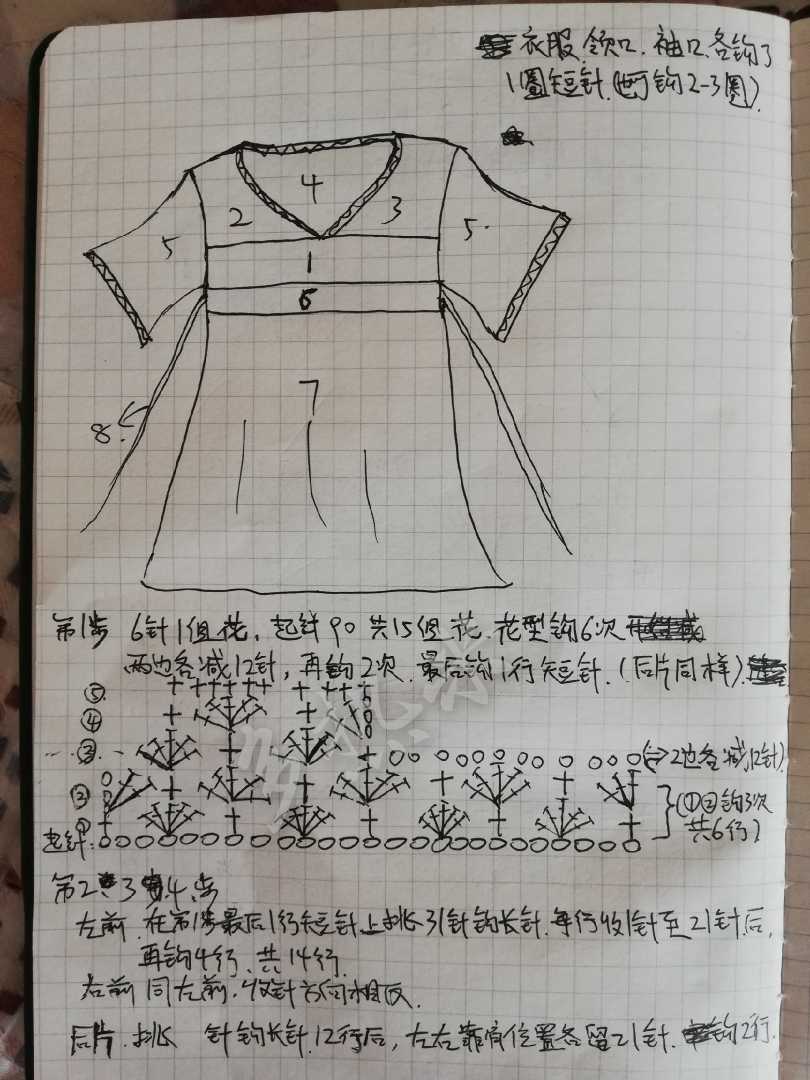 衣服.领口.袖口.各钩了
1圈短针.(也可钩2-3圈)
4
2
3
5
5.
1
6
7
8.
第1步 6针1组花.起针90 共15组花.花型钩6次
两边各减12针,再钩2次.最后钩1行短针.(后片同样)
⑤
④
③
(⇒2边各减12针)
②
(①②钩3次
①
共6行)
起针:
第2.3.4步
左前.在第1步最后1行短针上挑31针钩长针.每行收1针至21针后,
再钩4行.共14行.
右前同左前.收针方向相反.
后片.挑 针钩长针.12行后,左右靠肩位置各留21针.钩2行.